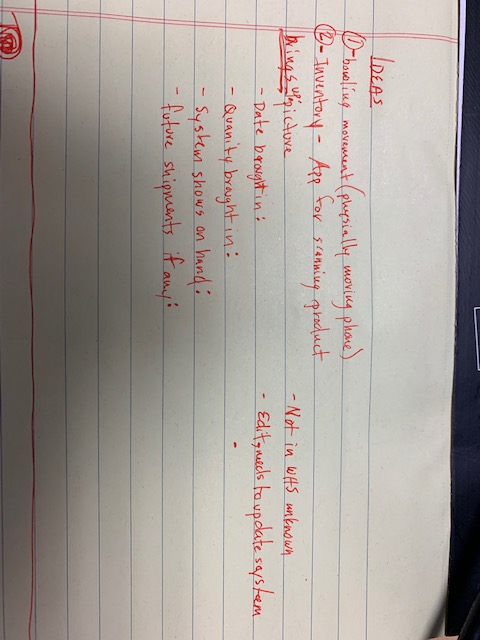 IDEAS
① - bowling movement (physially moving phone)
② - Inventory - App for scanning product
brings up picture
- Date brought in:
- Quanity brought in:
- System shows on hand:
- future shipments if any:
- Not in WHS unknown
- Edit, needs to update system
-